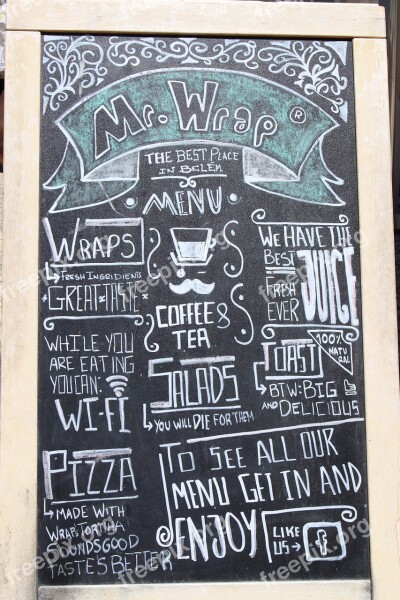 Mr. Wrap ®
THE BEST PLACE
IN BELEM
MENU
WRAPS
FRESH INGRIDIENTS
GREAT TASTE
COFFEE &
TEA
WE HAVE THE
BEST
FRESH
EVER
JUICE
WHILE YOU
ARE EATING
YOU CAN:
WI-FI
SALADS
YOU WILL DIE FOR THEM
TOAST
100%
NATU
RAL
BTW: BIG
AND DELICIOUS
PIZZA
MADE WITH
WRAP TORTILLA
SOUNDS GOOD
TASTES BETTER
TO SEE ALL OUR
MENU GET IN AND
ENJOY
LIKE
US
f
freepik.org